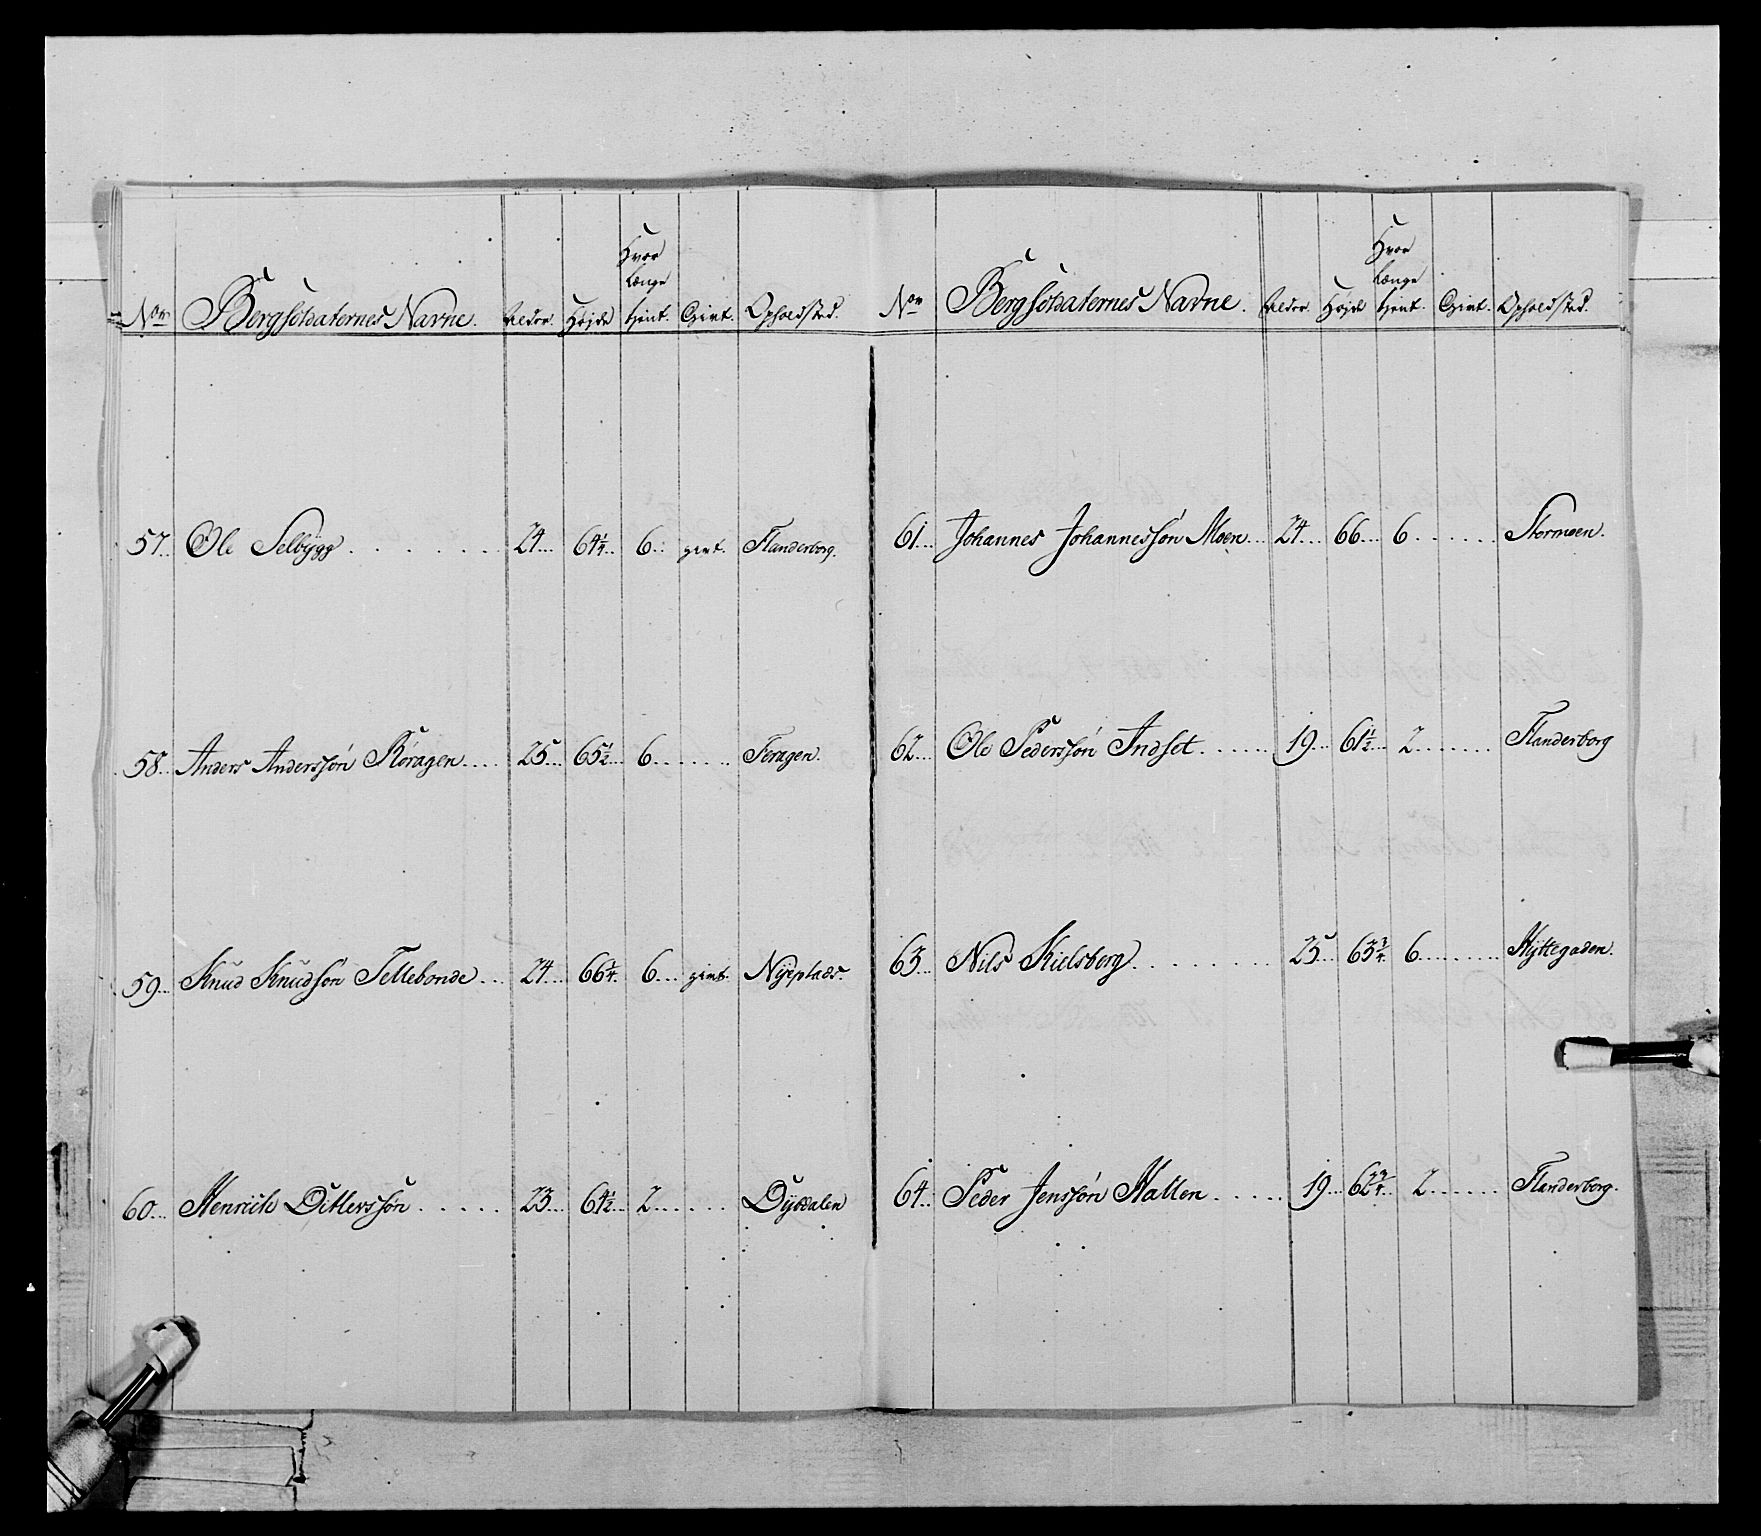 Nor Bergsoldaternes Navne. Alder. Højde Hvor længe tjent. Givt. Opholdsted.
57. Ole Selbÿgg 24 64 1/4 6 givt. Flanderborg.
58. Anders Anderssøn Røragen 25 65 1/2 6 Feragen.
59. Knud Knudsøn Tellebonde 24 66 3/4 6 givt. Nÿeplads.
60. Henrich Ditlevssøn 23 64 1/2 2 Dÿbdalen
Nor Bergsoldaternes Navne. Alder. Højde Hvor længe tjent. Givt. Opholdsted.
61. Johannes Johannessøn Moen 24 66 6 Stormoen.
62. Ole Pederssøn Indset 19 61 1/2 2 Flanderborg
63. Nils Kielsberg 25 63 3/4 6 Hÿttegaden.
64. Peder Jenssøn Hallen 19 62 3/4 2 Flanderborg.